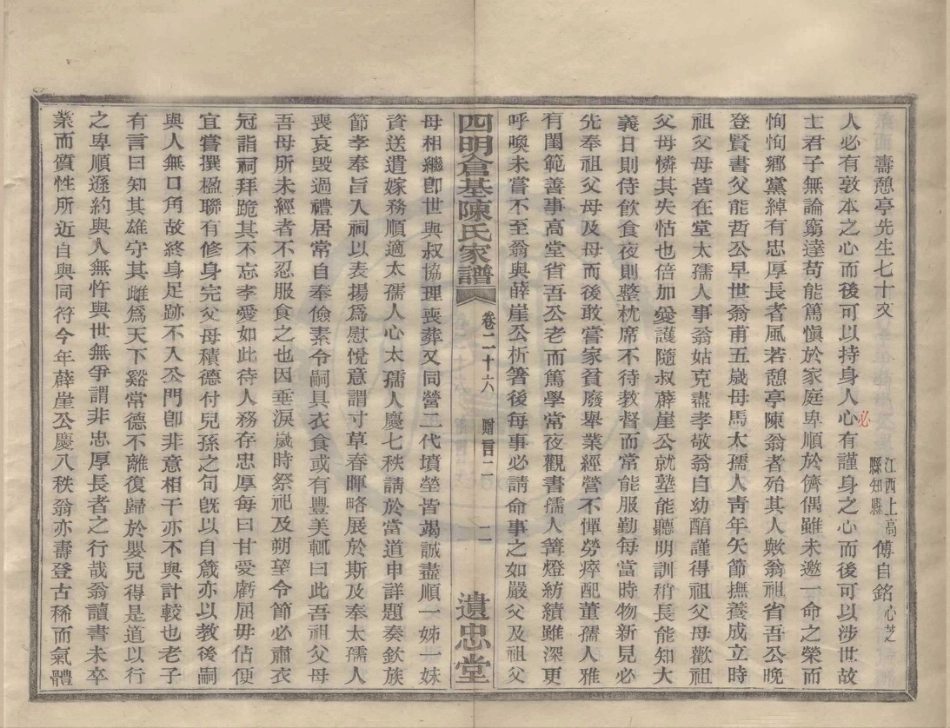 壽憩亭先生七十文
江西上高縣知縣 傅自銘 心芝
人必有敦本之心而後可以持身人心有謹身之心而後可以涉世故
必
士君子無論窮達苟能篤慎於家庭卑順於儕偶雖未邀一命之榮而
恂恂鄉黨綽有忠厚長者風若憩亭陳翁者殆其人歟翁祖省吾公晚
登賢書父能哲公早世翁甫五歲母馬太孺人青年矢節撫養成立時
祖父母皆在堂太孺人事翁姑克盡孝敬翁自幼醕謹得祖父母歡祖
父母憐其失怙也倍加愛護隨叔薜崖公就塾能聽明訓稍長能知大
義日則侍飲食夜則整枕席不待教督而常能服勤每當時物新見必
先奉祖父母及母而後敢嘗家貧廢舉業經營不憚勞瘁配董孺人雅
有閨範善事高堂省吾公老而篤學常夜觀書孺人篝燈紡績雖深更
呼喚未嘗不至翁與薛崖公析箸後每事必請命事之如嚴父及祖父
四明倉基陳氏家譜
卷二十六
附言二
二
遺忠堂
母相繼卽世與叔協理喪葬又同營二代墳塋皆竭誠盡順一姊一妹
資送遺嫁務順適太孺人心太孺人慶七秩請於當道申詳題奏欽族
節孝奉旨入祠以表揚爲慰悅意謂寸草春暉略展於斯及奉太孺人
喪哀毀過禮居常自奉儉素令嗣具衣食或有豐美輒曰此吾祖父母
吾母所未經者不忍服食之也因垂淚歲時祭祀及朔望令節必肅衣
冠詣祠拜跪其不忘孝愛如此待人務存忠厚每曰甘受虧屈毋佔便
宜嘗撰楹聯有修身完父母積德付兒孫之句旣以自箴亦以教後嗣
與人無口角故終身足跡不入公門卽非意相干亦不與計較也老子
有言曰知其雄守其雌爲天下谿常德不離復歸於嬰兒得是道以行
之卑順遜約與人無忤與世無爭謂非忠厚長者之行哉翁讀書未卒
業而質性所近自與同符今年薜崖公慶八秩翁亦壽登古稀而氣體